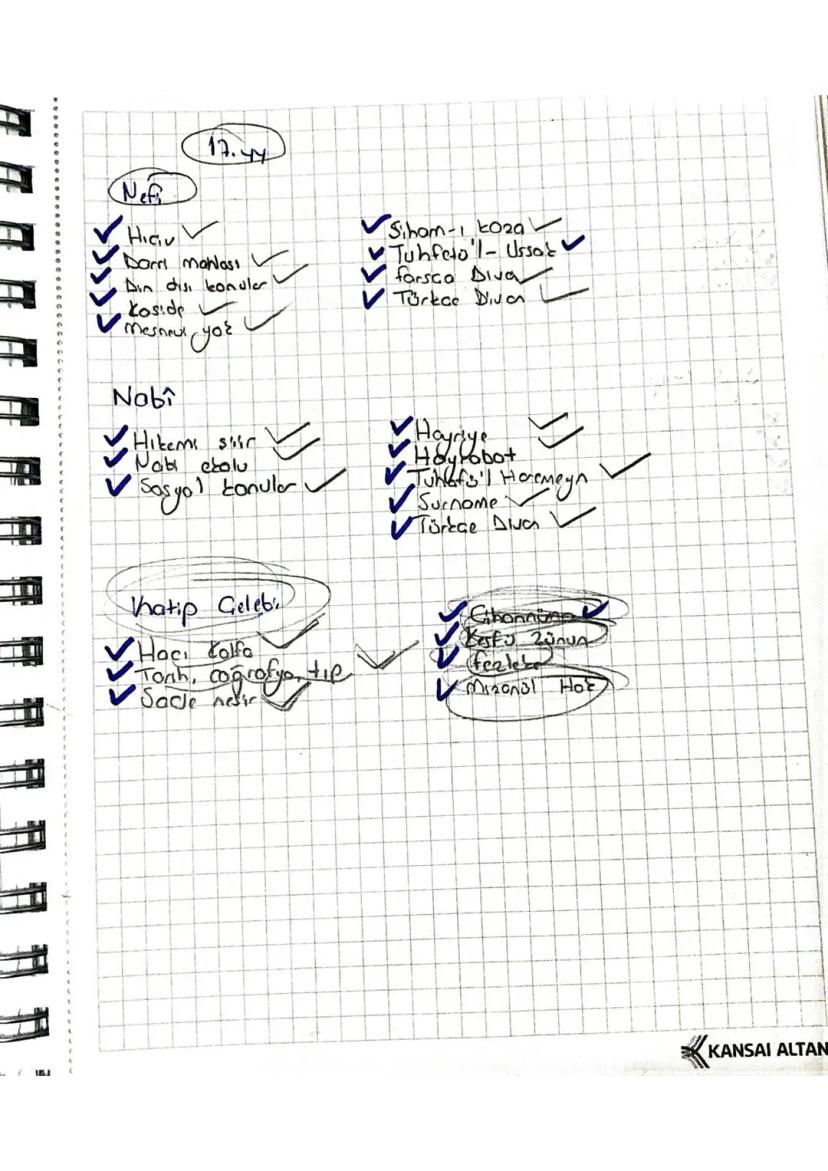 17.yy
Nefi
Hiciv
Darri mahlası
Din dışı konular
Kaside
Mesnevi yok
Siham-ı Kaza
Tuhfetü'l-Uşşak
Farsça Divan
Türkçe Divan
Nabî
Hikemi şiir
Nabi ekolu
Sosyal konular
Hayriye
Hayrabat
Tuhfetü'l Haremeyn
Surname
Türkçe Divan
Katip Çelebi
Hacı Kalfa
Tarih, coğrafya, tıp
Sade nesir
Cihannüma
Keşfü Zünun
Fezleke
Mizanül Hak
KANSAI ALTAN